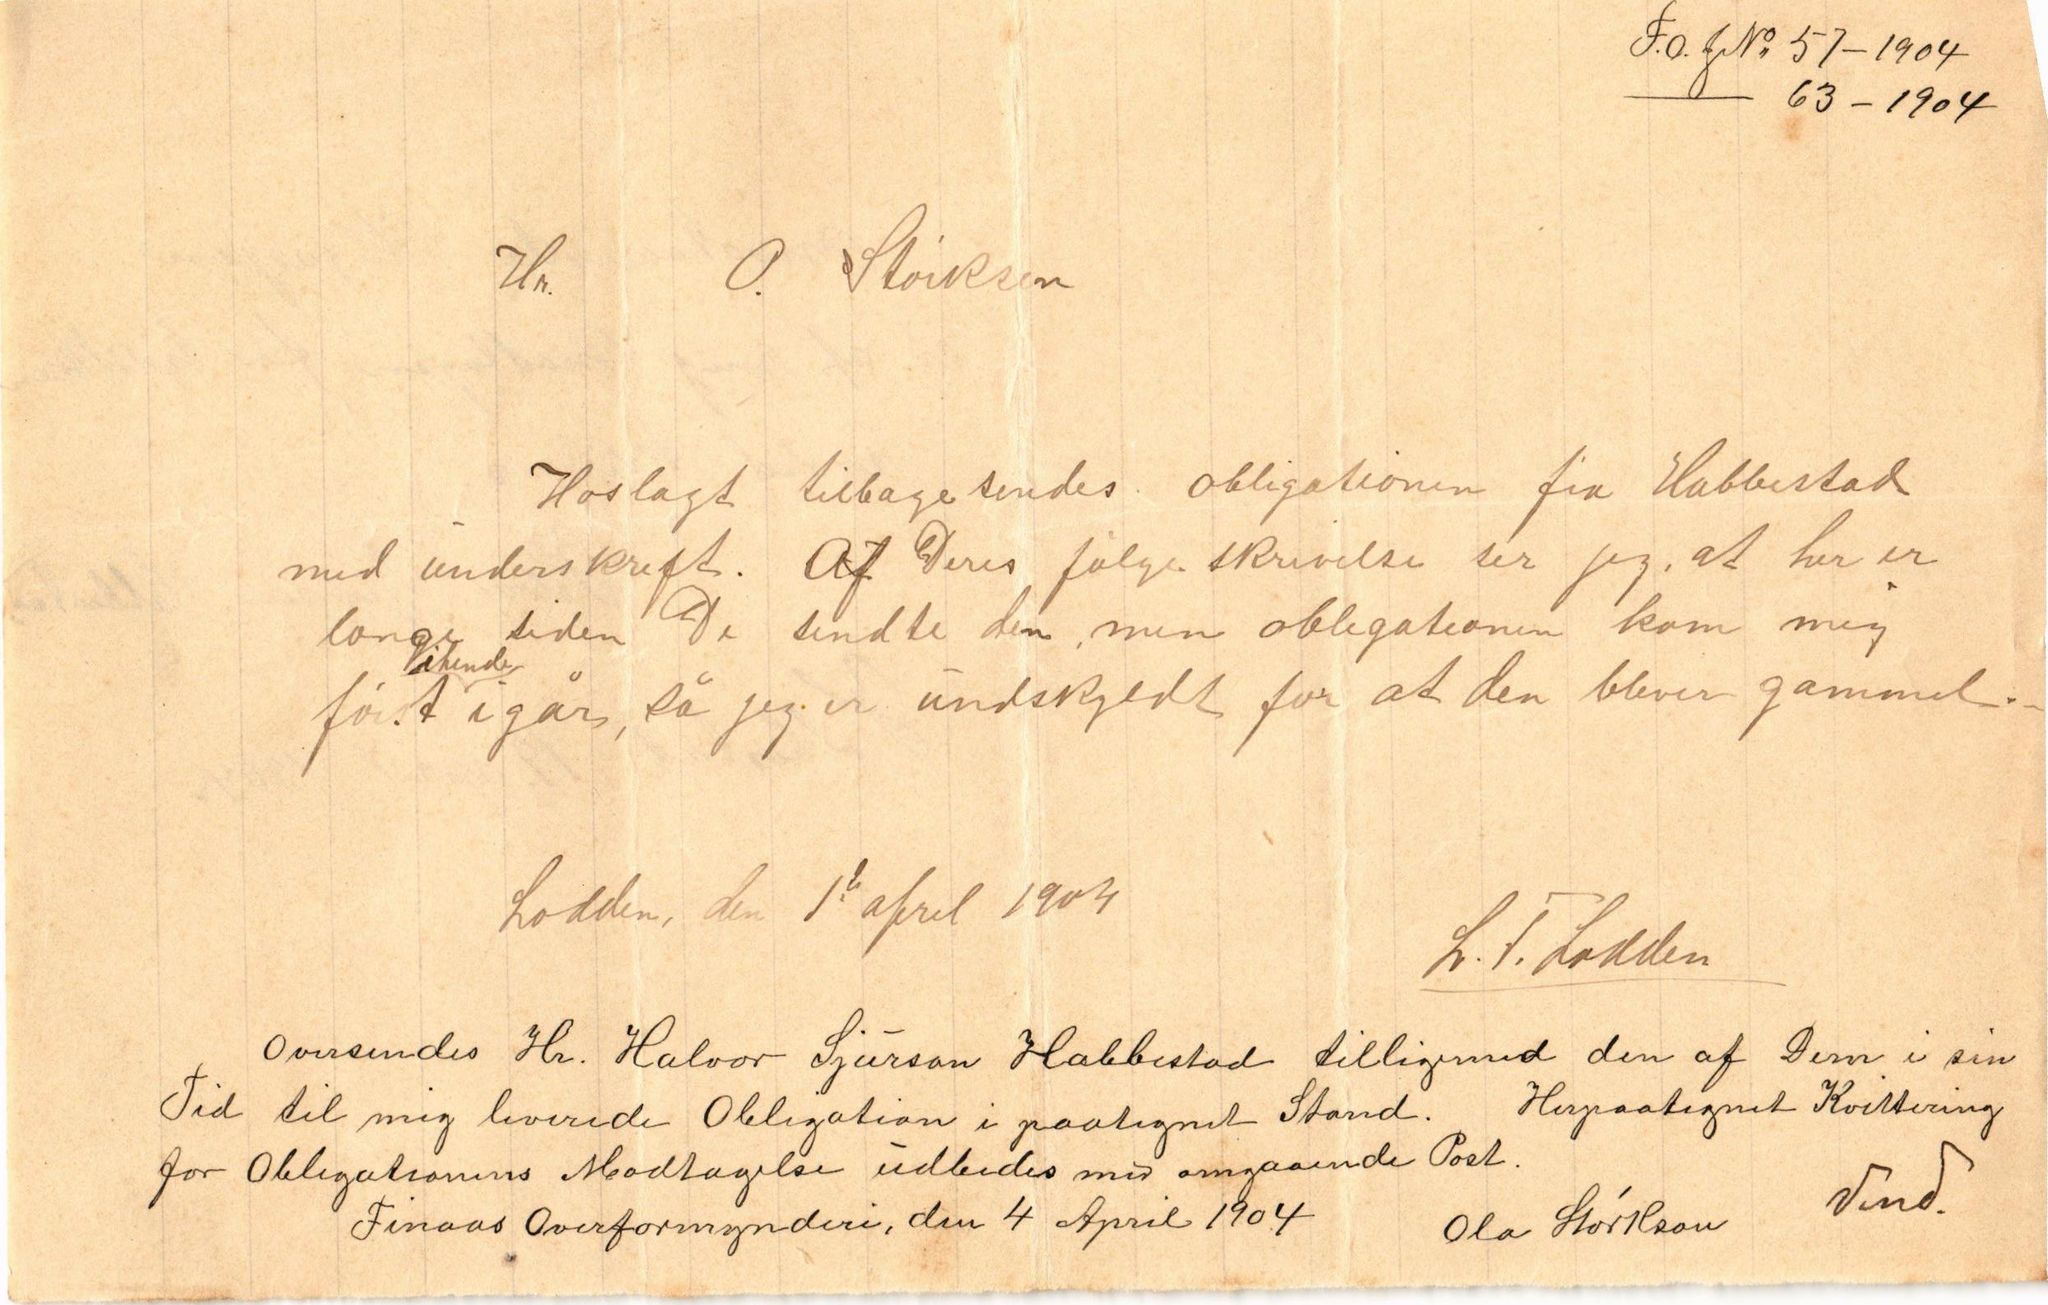 F.O.J. No 57 – 1904
63 – 1904
Hr. O. Störksen
Hoslagt tilbagesendes obligationen fra Habbestad
med underskrift. Af Deres følgeskrivelse ser jeg, at her er
længe siden De sendte den, men obligationen kom mig
ihænde
først igår, så jeg er undskyldt for at den blever gammel. –
Lodden, den 1ste april 1904
L. T. Lodden
Oversendes Hr. Halvor Sjurson Habbestad tilligemed den af Dem i sin
Tid til mig leverede Obligation i paategnet Stand. Herpaategnet Kvittering
for Obligationens Modtagelse udbedes med omgaaende Post.
Finaas Overformynderi, den 4 April 1904
Ola Störkson
Vend.